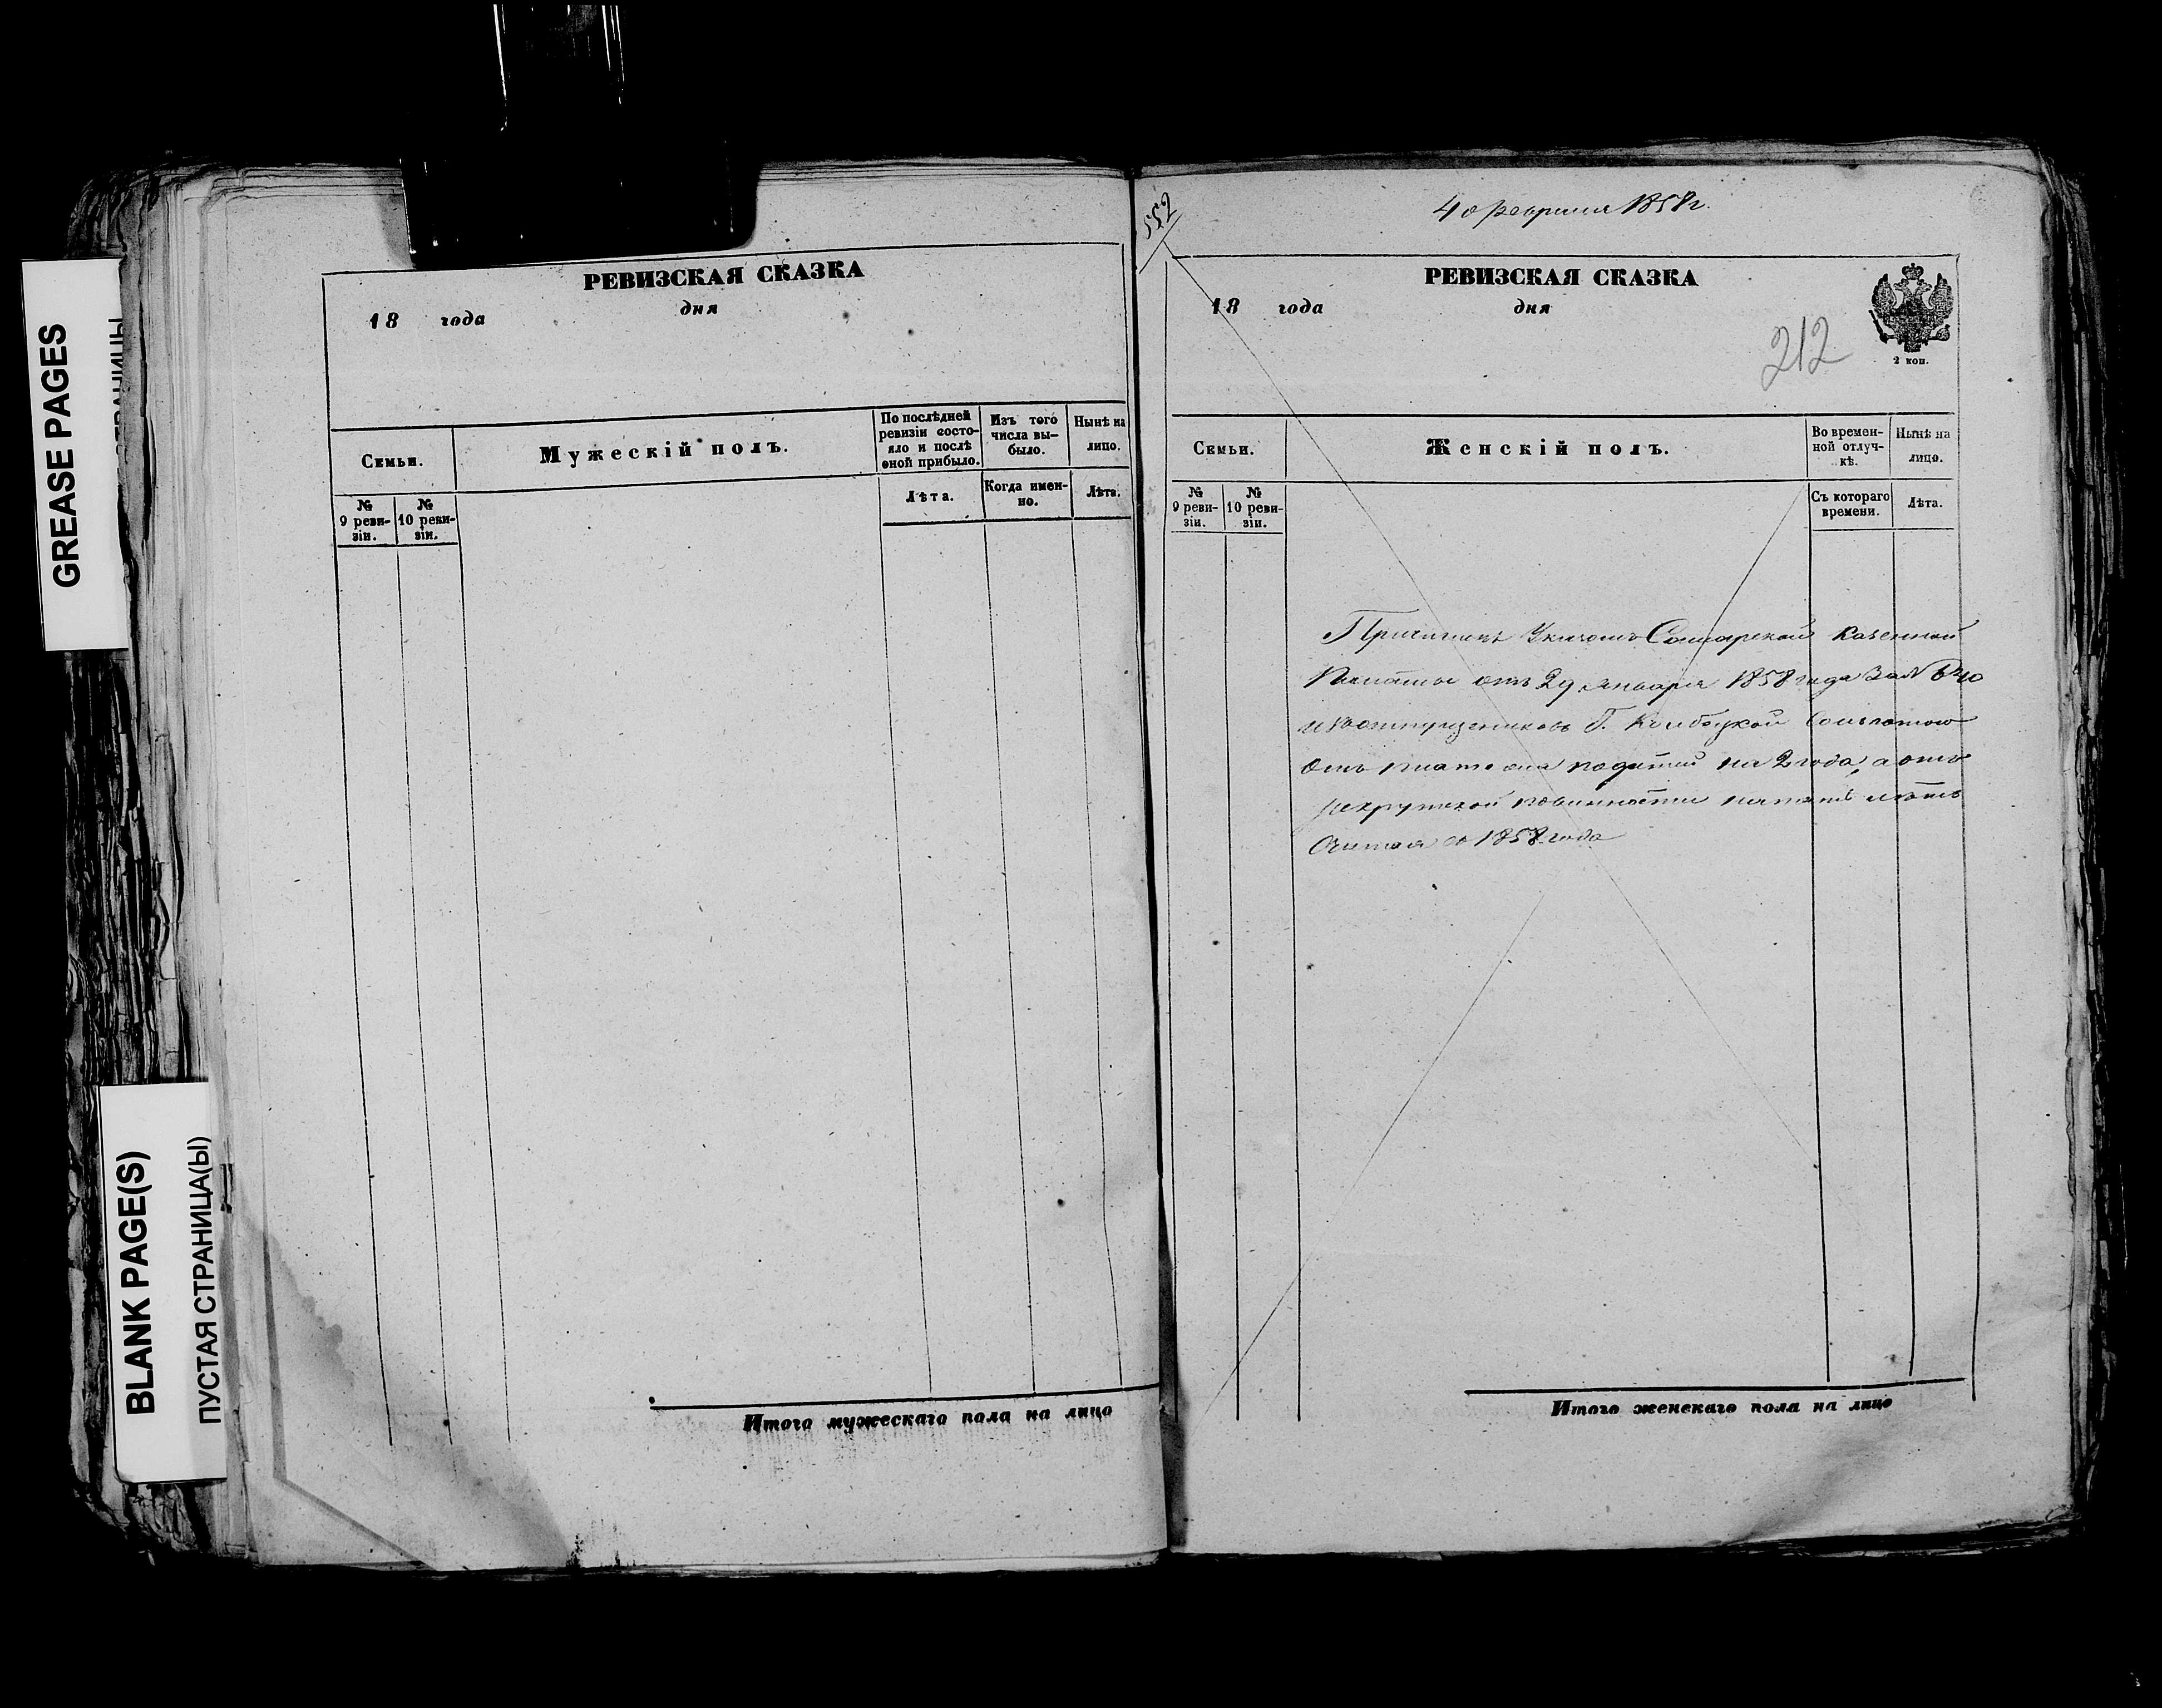 GREASE PAGES
СТРАНИЦЫ
BLANK PAGE(S)
ПУСТАЯ СТРАНИЦА(Ы)
РЕВИЗСКАЯ СКАЗКА
18 года дня
Семьи.
Мужескій полъ.
По послѣдней ревизіи состояло и послѣ оной прибыло.
Изъ того числа выбыло.
Нынѣ на лицо.
№ 9 ревизіи.
№ 10 ревизіи.
Лѣта.
Когда именно.
Лѣта.
Итого мужескаго пола на лицо
552
4 февраля 1858 г.
РЕВИЗСКАЯ СКАЗКА
18 года дня
212
2 коп.
Семьи.
Женскій полъ.
Во временной отлучкѣ.
Нынѣ на лицо.
№ 9 ревизіи.
№ 10 ревизіи.
Съ котораго времени.
Лѣта.
Указомъ Самарской Казенной
Палаты отъ 29 января 1858 года за №
Г. съ льготою
отъ платежа податей на 2 года, а отъ
рекрутской повинности на пять лѣтъ
Считая съ 1858 года
Итого женскаго пола на лицо